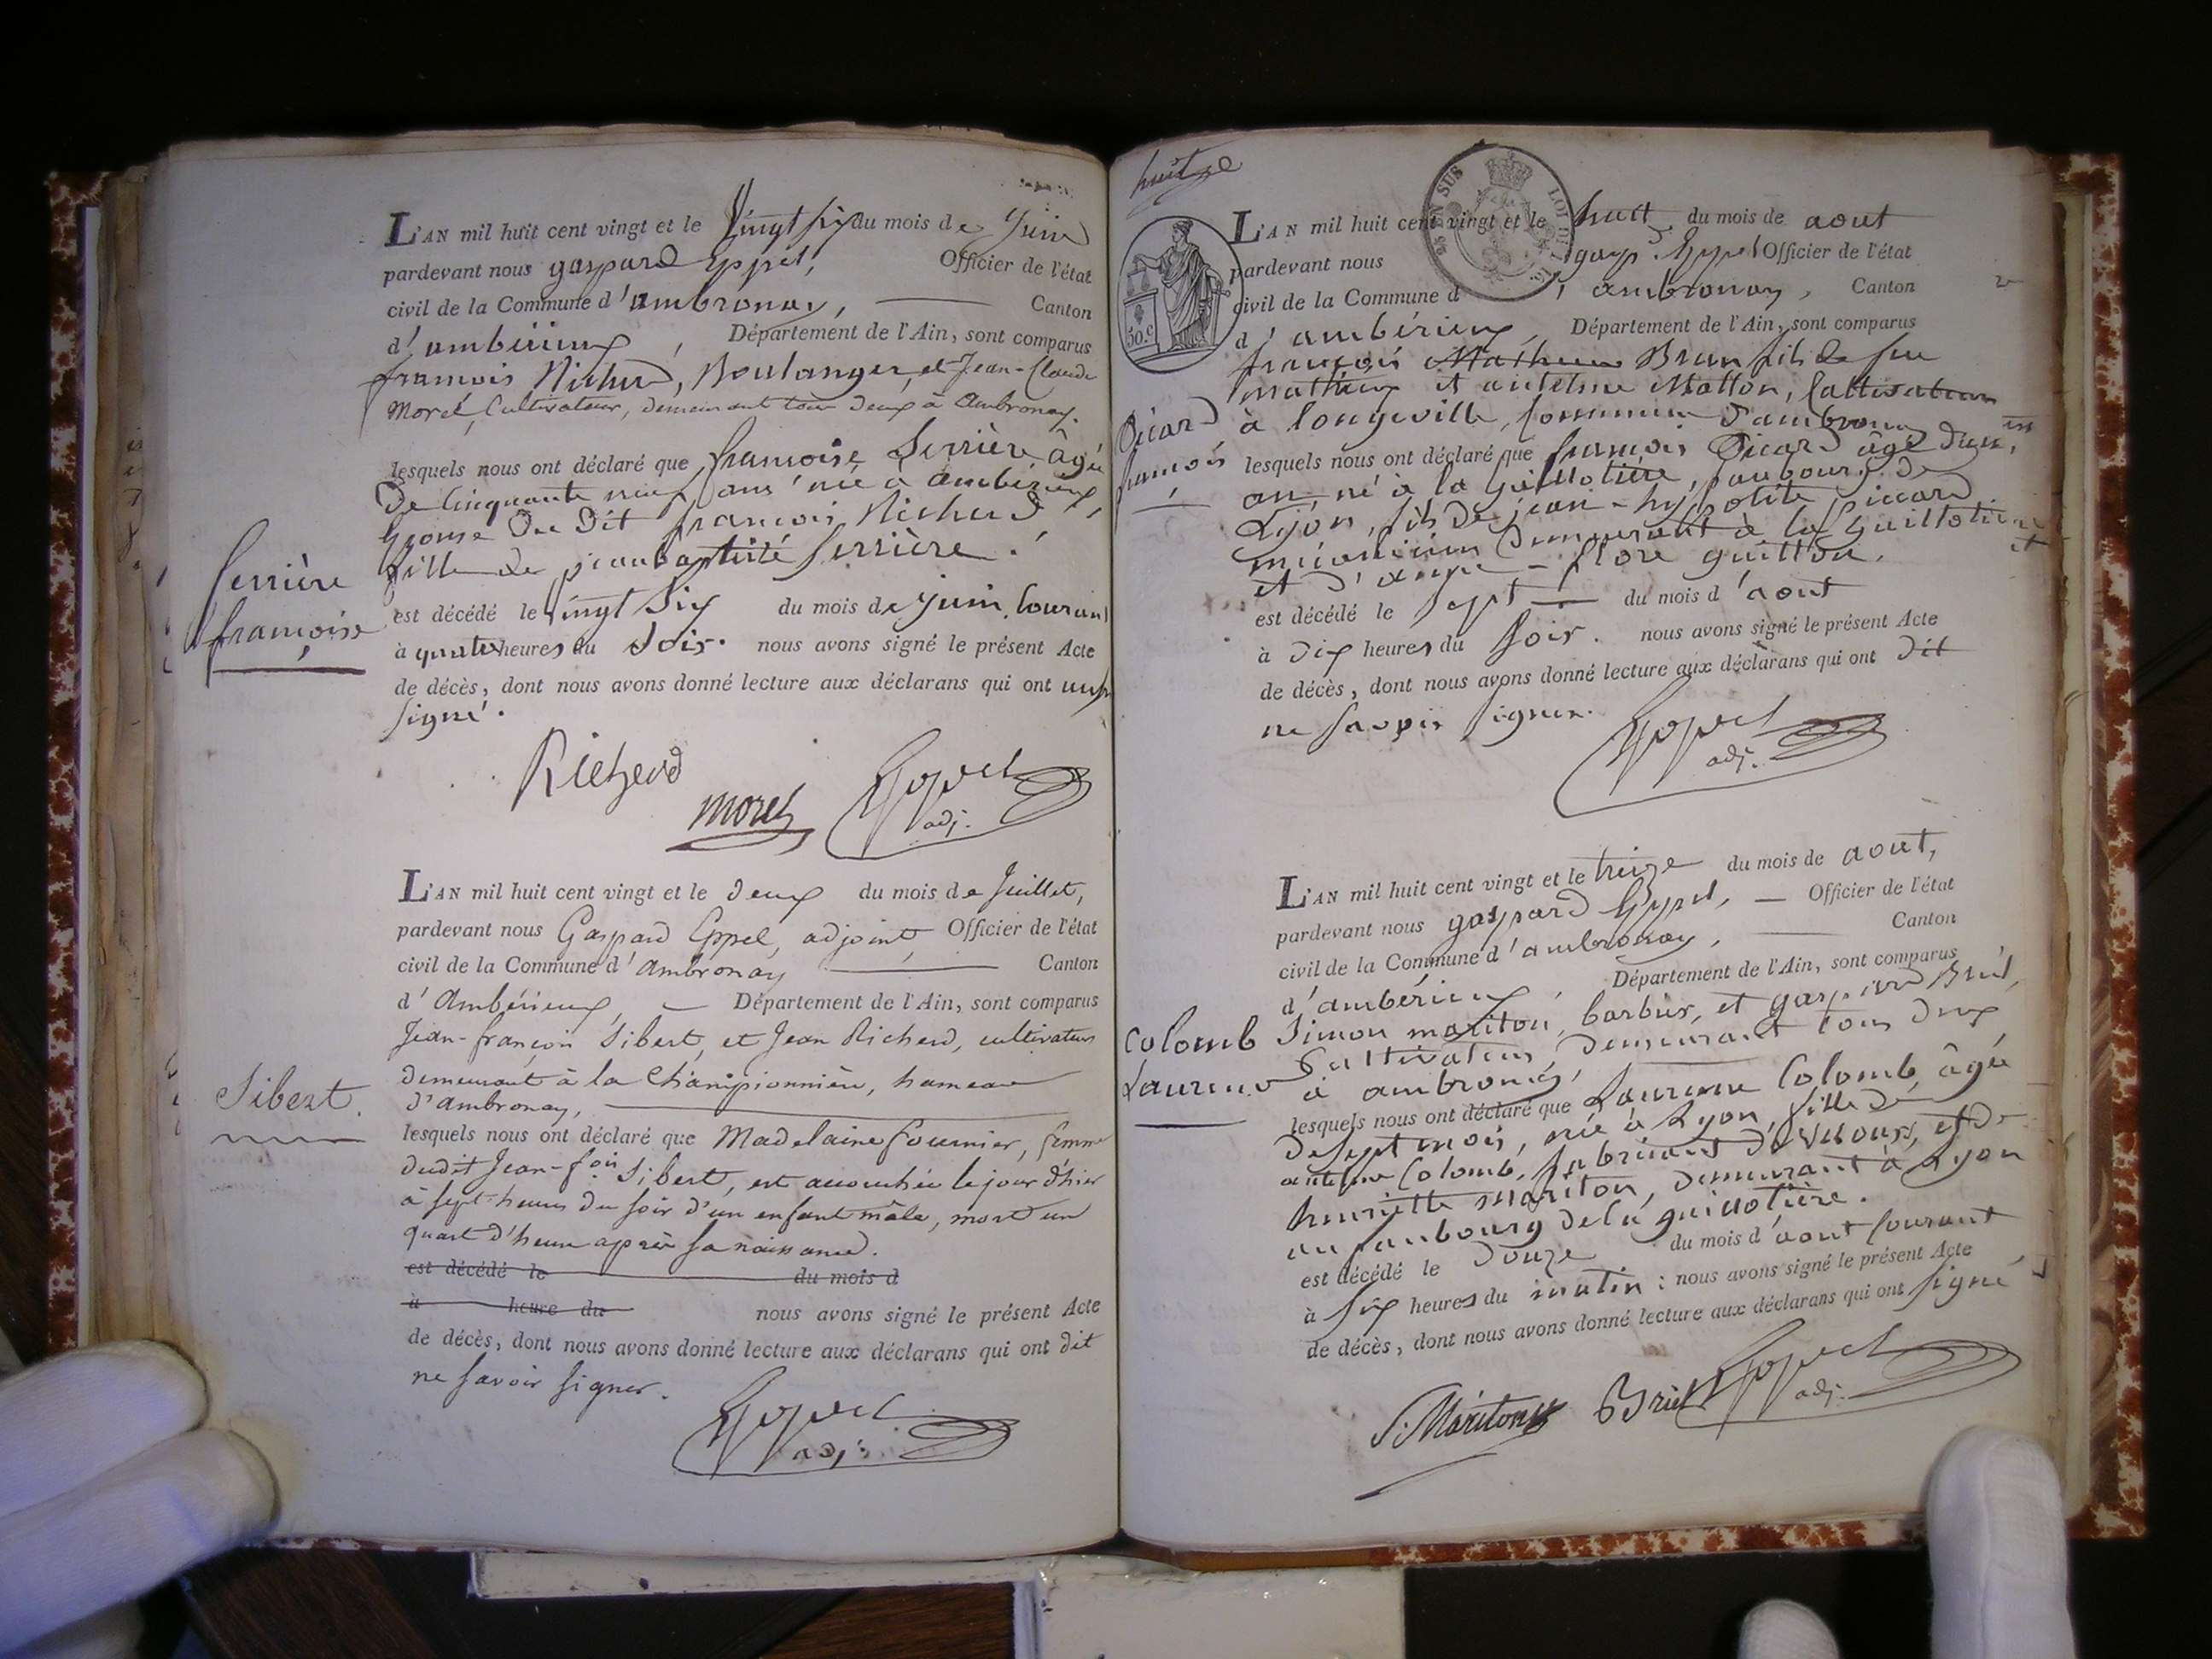 L'AN mil huit cent vingt et le Vingt six du mois de Juin
pardevant nous gaspard Eppel, Officier de l'état
civil de la Commune d'ambronay, Canton
d'ambérieux, Département de l'Ain, sont comparus
francois Richerd, Boulanger, et Jean-Claude
Morel, Cultivateur, demeurant tous deux à Ambronay.
lesquels nous ont déclaré que francoise Serrière âgée
De Cinquante neuf ans née à ambérieux,
Epouse Du Dit francois Richerd
fille de jeanbaptiste Serrière.
Serrière
francoise
est décédé le vingt Six du mois de Juin Courant
à quatre heures du Soir. nous avons signé le présent Acte
de décès, dont nous avons donné lecture aux déclarans qui ont
signé.
Richerd
Morel
Eppel
adj.
L'AN mil huit cent vingt et le deux du mois de Juillet,
pardevant nous Gaspard Eppel, adjoint, Officier de l'état
civil de la Commune d'Ambronay Canton
d'Ambérieux, Département de l'Ain, sont comparus
Jean-françois Sibert, et Jean Richerd, cultivateurs
demeurant à la Championnière, hameau
d'ambronay,
Sibert.
lesquels nous ont déclaré que Madelaine Fournier, femme
dudit Jean-fois Sibert, est accouchée le jour d'hier
à sept heures du soir d'un enfant mâle, mort un
quart d'heure après sa naissance.
est décédé le du mois d
à heure du nous avons signé le présent Acte
de décès, dont nous avons donné lecture aux déclarans qui ont dit
ne savoir signer.
Eppel
adj.
huit
L'AN mil huit cent vingt et le huit du mois de aout
pardevant nous gasp.d Eppel Officier de l'état
civil de la Commune d'ambronay, Canton
d'ambérieux, Département de l'Ain, sont comparus
SUS LOI DE
50.c
françois Mathieu Brun fils de feu
mathieux et antelme Mollon, Cultivateurs
à longeville, Commune d'ambronay
Picard
françois
lesquels nous ont déclaré que françois Picard âgé d'un
an, né à la Guillotière, faubourg de
Lyon, fils de jean-hyppolite Piccard
mécanicien Demeurant à la Guillotière
et d'anne-flore guitton.
est décédé le sept du mois d'aout
à Dix heures du soir. nous avons signé le présent Acte
de décès, dont nous avons donné lecture aux déclarans qui ont dit
ne savoir signer.
Eppel
adj.
L'AN mil huit cent vingt et le treize du mois de aout,
pardevant nous gaspard Eppel, Officier de l'état
civil de la Commune d'ambronay, Canton
d'ambérieux, Département de l'Ain, sont comparus
Simon mariton, barbier, et gaspard Briel,
Cultivateur, Demeurant tous deux
à ambronay,
Colomb
Laurence
lesquels nous ont déclaré que Laurence Colomb, âgée
De sept mois, née à Lyon, fille de
antelme Colomb, fabricant de velours, et de
henriette mariton, Demeurant à Lyon
au faubourg dela guillotière.
est décédé le Douze du mois d'aout Courant
à six heures du matin: nous avons signé le présent Acte
de décès, dont nous avons donné lecture aux déclarans qui ont signé
S. Mariton Briel Eppel
adj.